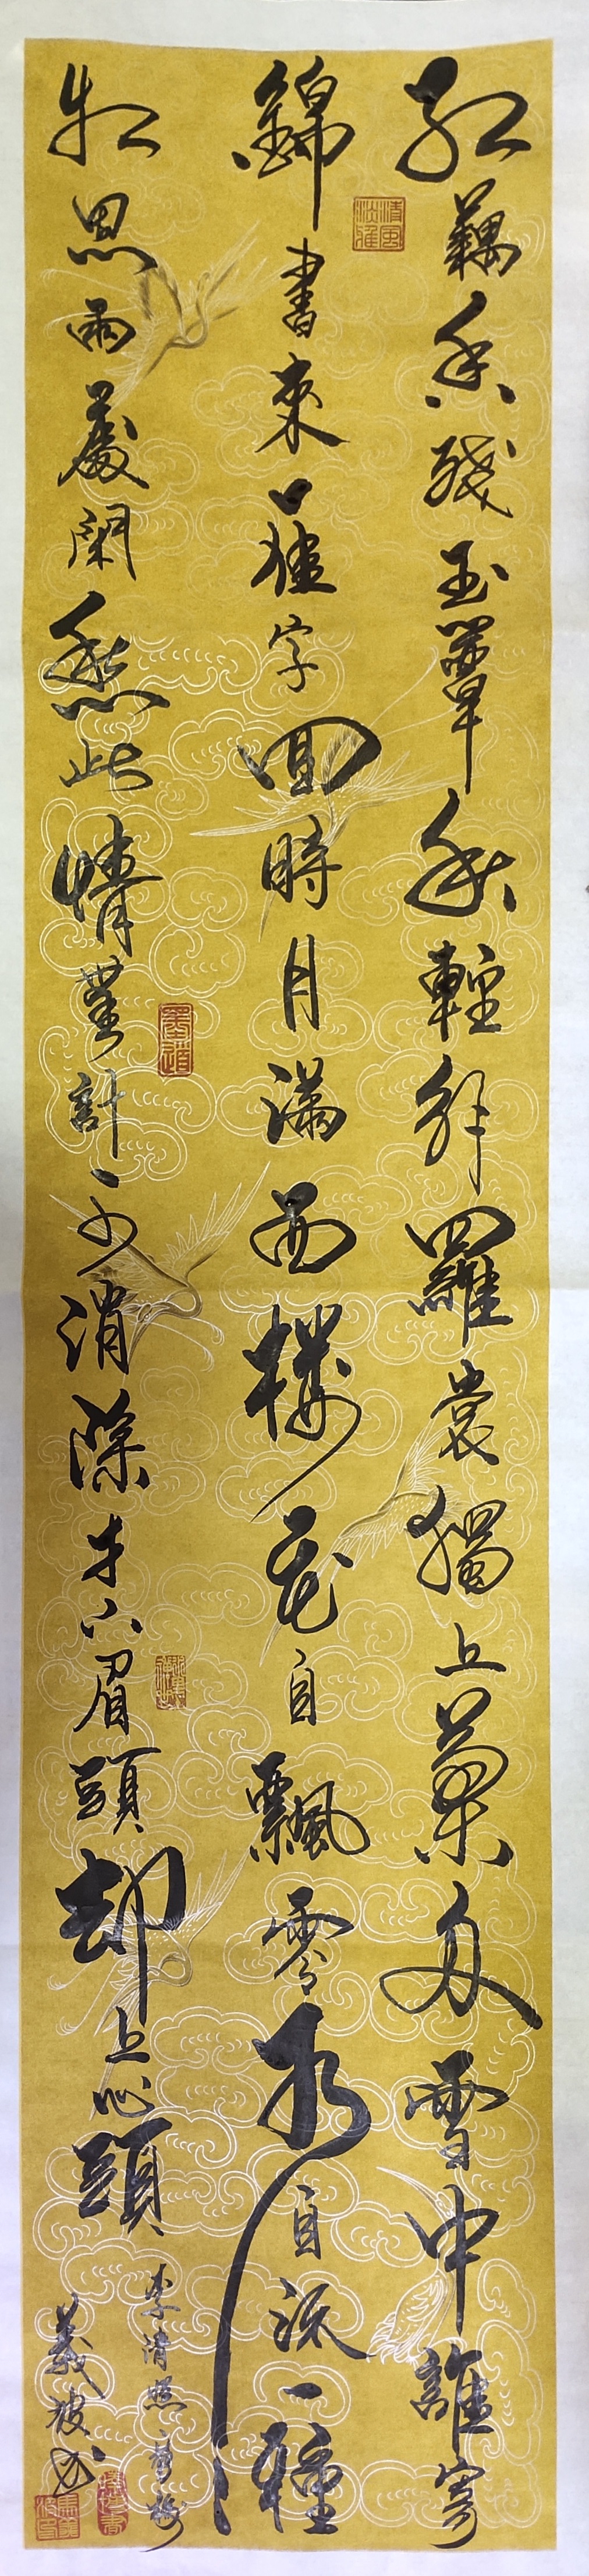 紅藕香殘玉簟秋輕解羅裳獨上蘭舟雲中誰寄
錦書來雁字回時月滿西樓花自飄零水自流一種
相思兩處閑愁此情無計可消除才下眉頭却上心頭
李清照一剪梅
義书